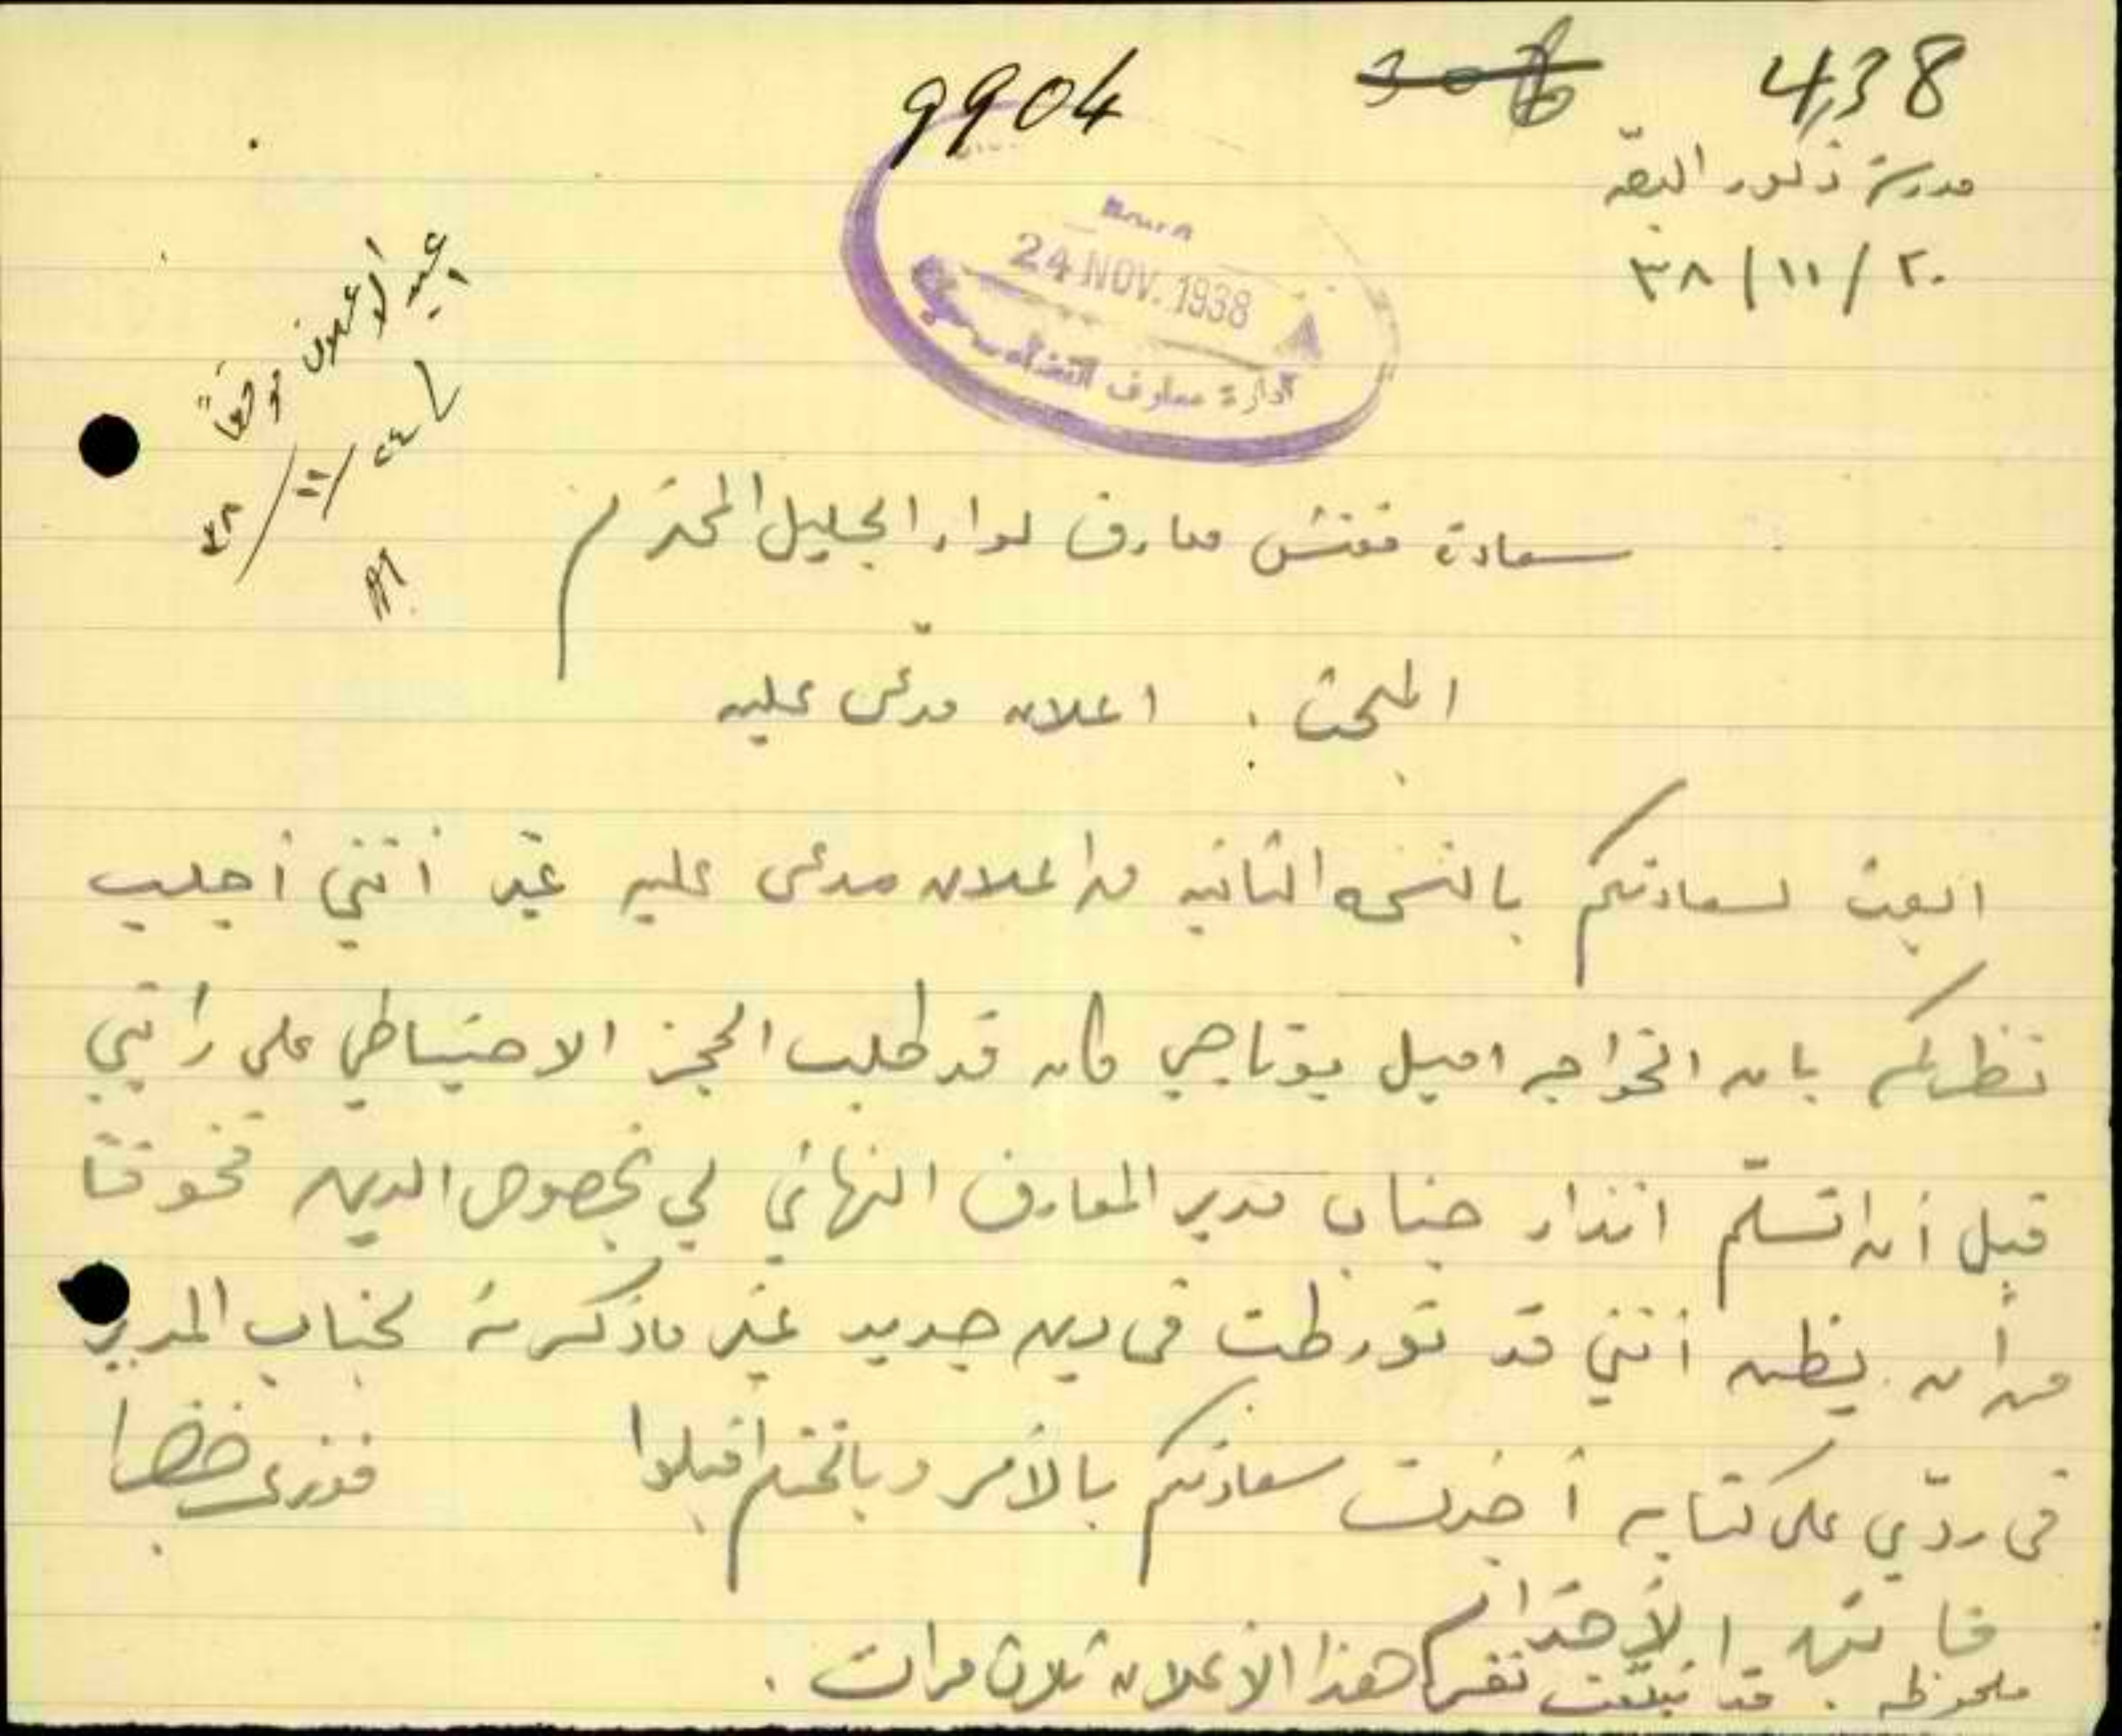 9904
438
مدرسة ذكور البصّه
٢٠ / ١١ / ٣٨
24 NOV. 1938
ادارة معارف
اعيد الاعلان موقعاً
٢٤ / ١١ / ٣٨
سعادة مفتش معارف لواء الجليل المحترم
المبحث : اعلان مدعى عليه
ابعث لسعادتكم بالنسخه الثانيه من اعلان مدعى عليه غير أنني أجلب
نظركم بان الخواجه اميل بوتاجي كان قد طلب الحجز الاحتياطي على راتبي
قبل أن اتسلّم انذار جناب مدير المعارف النهائي لي بخصوص الدين فخوفا
من أن يظن أنني قد تورطت في دين جديد غير ما ذكرته لجناب المدير
في ردّي على كتابه أخبرت سعادتكم بالأمر وبالختم اقبلوا
فائق الأحترام
فوزي خضرا
ملحوظه : قد تبلّغت نفس هذا الأعلان ثلاث مرات .